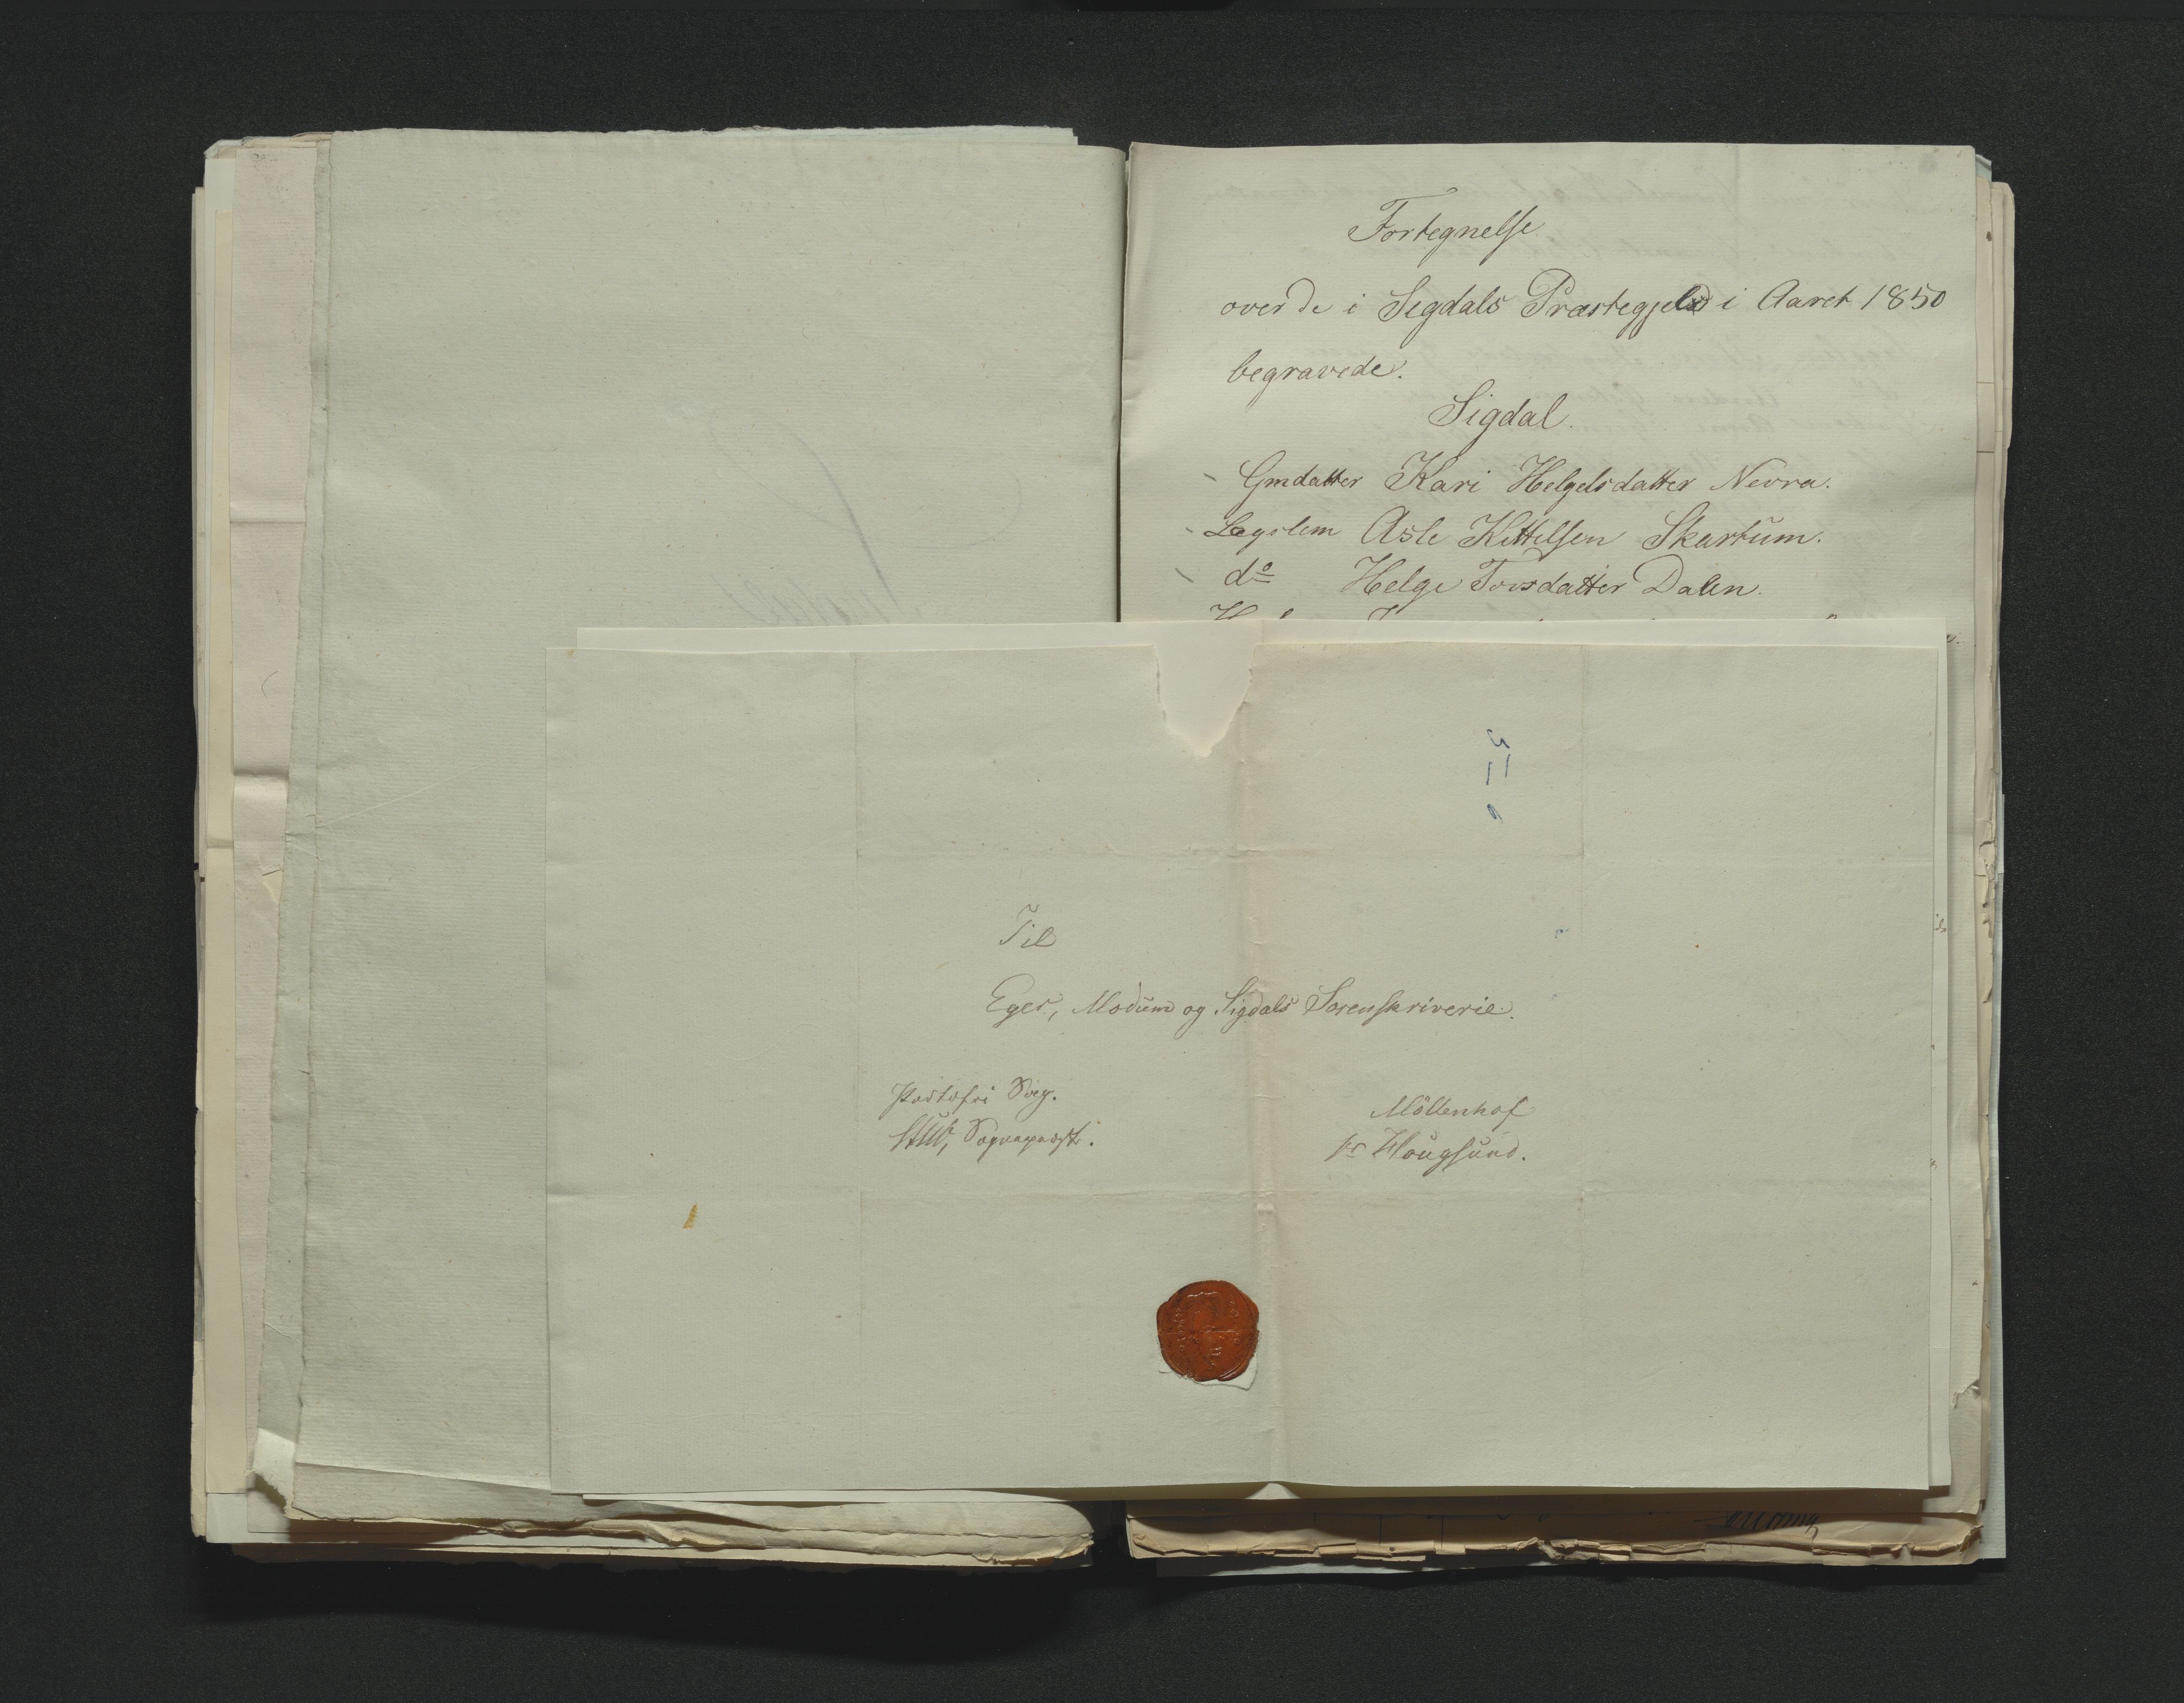 Fortegnelse
over de i Segdals Præstegjeld i Aaret 1850
begravede.
Sigdal.
Gmdatter Kari Helgesdatter Nevra.
Lægslem Asle Kittelsen Skartum.
do Helge Torsdatter Dalen.
Til
Eger, Modum og Sigdals Sorenskriverie.
Portofri Sag.
Stub, Sognepræst.
Möllenhof
pr Hougsund.